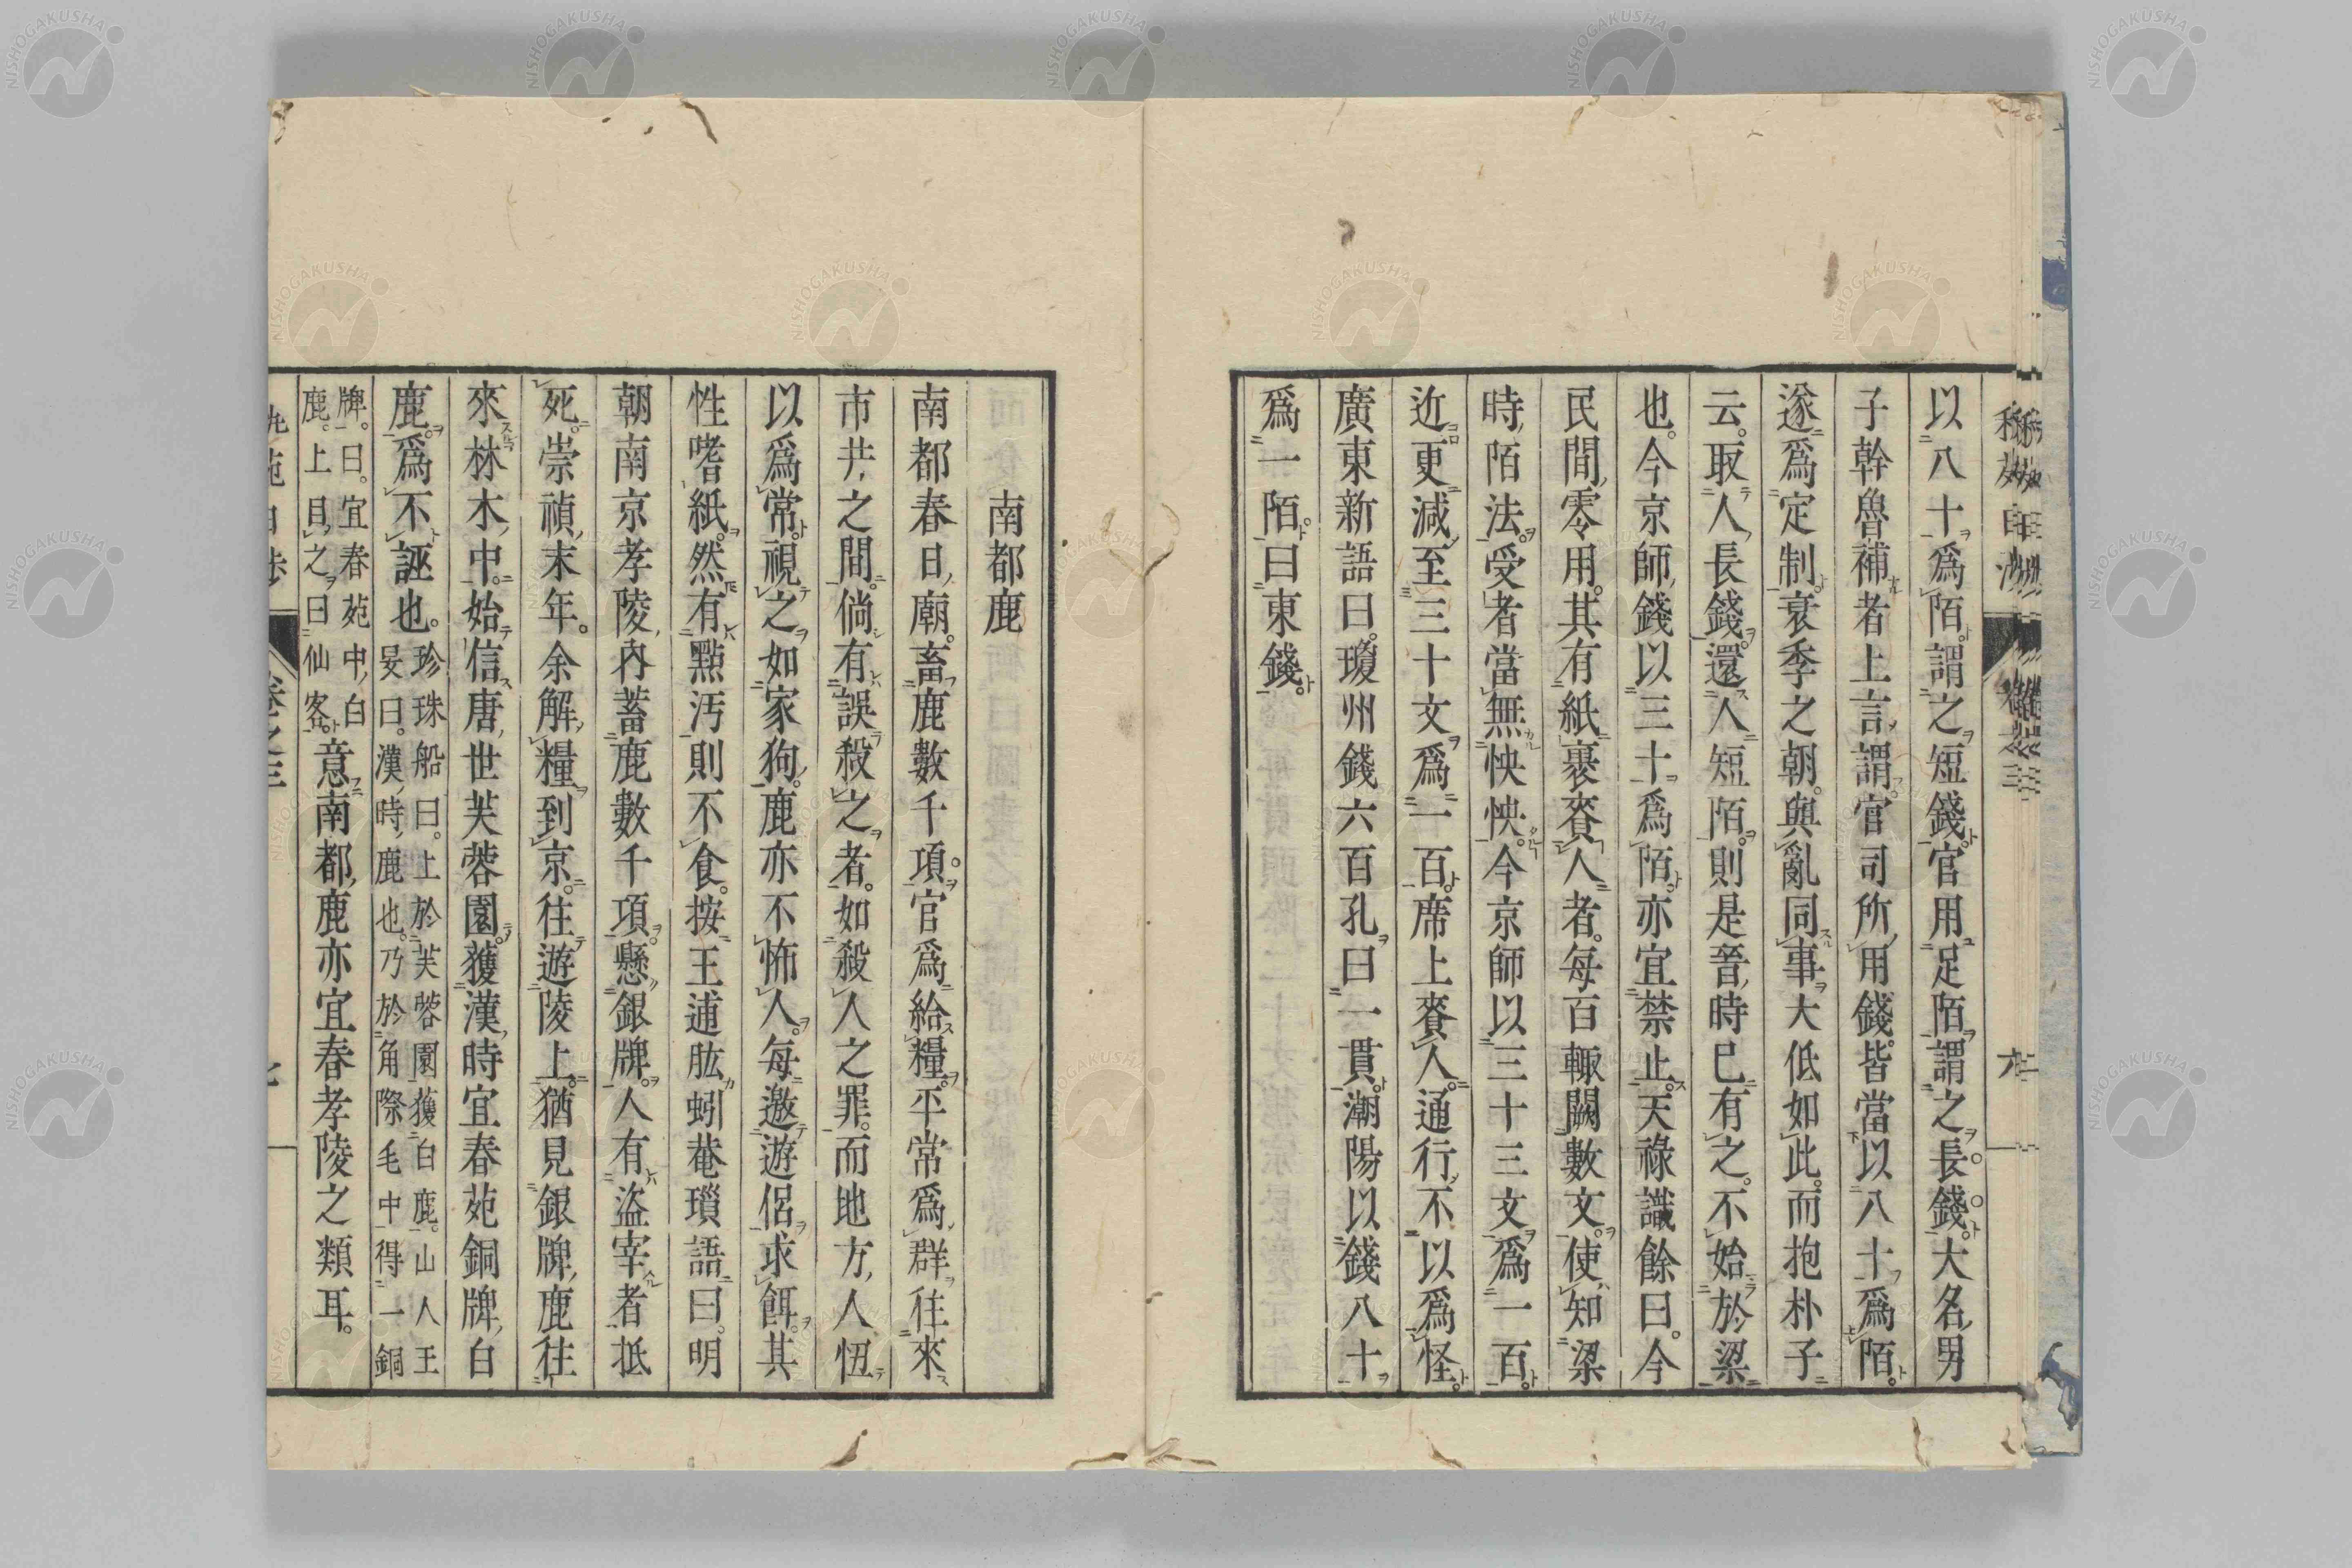 以八十爲陌謂之短錢官用足陌謂之長錢大名男
子幹魯補者上言謂官司所用錢皆當以八十爲陌
遂爲定制衰季之朝與亂同事大低如此而抱朴子
云取人長錢還人短陌則是晉時已有之不始於梁
也今京師錢以三十爲陌亦宜禁止天祿識餘曰今
民間零用其有紙裹賚人者每百輙闕數文使知梁
時陌法受者當無怏怏今京師以三十三文爲一百
近更減至三十文爲一百席上賚人通行不以爲怪
廣東新語曰瓊州錢六百孔曰一貫潮陽以錢八十
爲一陌曰東錢
南都鹿
南都春日廟畜鹿數千項官爲給糧平常爲群往來
市井之間倘有誤殺之者如殺人之罪而地方人忸
以爲常視之如家狗鹿亦不怖人每邀遊侶求餌其
性嗜紙然有點汚則不食按王逋肱蚓菴瑣語曰明
朝南京孝陵內蓄鹿數千項懸銀牌人有盜宰者抵
死崇禎末年余解糧到京往遊陵上猶見銀牌鹿往
來林木中始信唐世芙蓉園獲漢時宜春苑銅牌白
鹿爲不誣也珍珠船曰上於芙蓉園獲白鹿山人王
旻曰漢時鹿也乃於角際毛中得一銅
牌曰宜春苑中白
鹿上目之曰仙客意南都鹿亦宜春孝陵之類耳
NISHOGAKUSHA